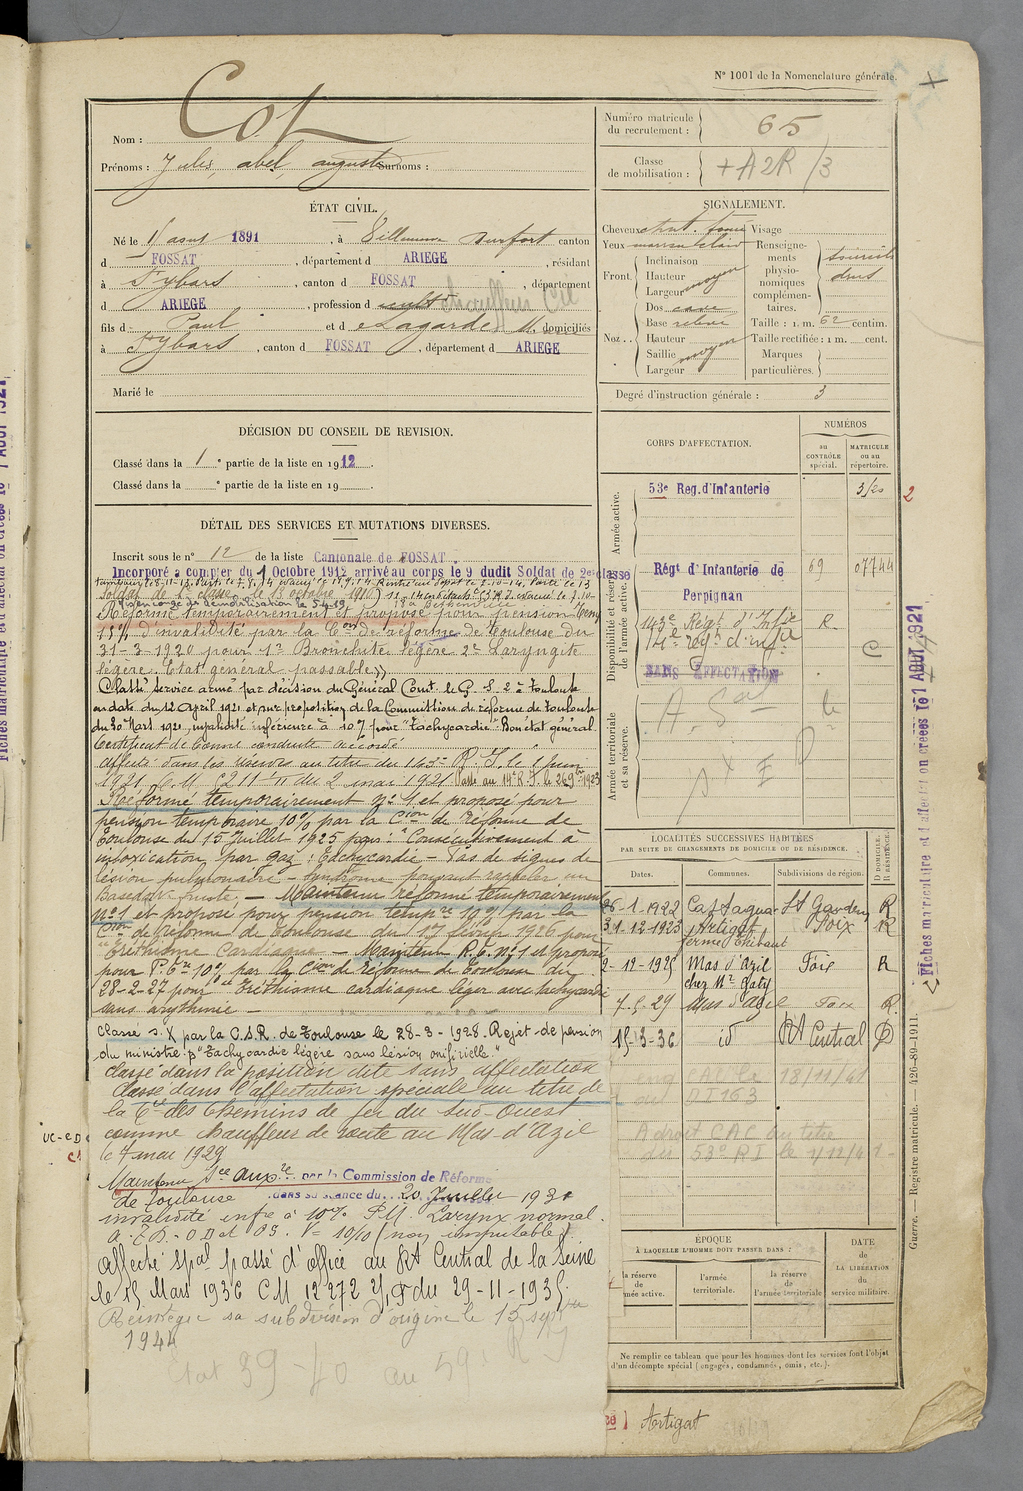 N° 1001 de la Nomenclature générale.
Nom : Cot
Prénoms : Jules, abel, auguste Surnoms :
Numéro matricule du recrutement : 65
Classe de mobilisation : + A2R /3
ÉTAT CIVIL.
Né le 1 aout 1891, à Durfort canton
d FOSSAT, département d ARIEGE, résidant
à St ybars, canton d FOSSAT, département
d ARIEGE, profession d cult chauffeur
fils d Paul et d Lagarde M. domiciliés
à St ybars, canton d FOSSAT, département d ARIEGE
Marié le
SIGNALEMENT.
Cheveux chat. foncé Visage
Yeux marron clair
Front. Inclinaison
Hauteur
Largeur moyen
Nez.. Dos cave
Base relevé
Hauteur
Saillie moyen
Largeur
Renseignements physionomiques complémentaires.
Taille : 1 m. 62 centim.
Taille rectifiée : 1 m. cent.
Marques particulières.
Degré d'instruction générale : 3
DÉCISION DU CONSEIL DE REVISION.
Classé dans la 1 e partie de la liste en 1912.
Classé dans la e partie de la liste en 19
DÉTAIL DES SERVICES ET MUTATIONS DIVERSES.
Inscrit sous le n° 12 de la liste Cantonale de FOSSAT.
Incorporé à compter du 1 Octobre 1912 arrivé au corps le 9 dudit Soldat de 2e classe
Soldat de 1re classe le 13 octobre
Réformé temporairement et proposé pour pension temp
15% d'invalidité par la Con de réforme de Toulouse du
31-3-1920 pour 1° Bronchite légère 2° Laryngite
légère. Etat général passable
Classé service armé par décision du Général Comt le G. S. 2 à Toulouse
en date du 12 April 1921 et sur proposition de la Commission de réforme de Toulouse
du 30 Mars 1921, invalidité inférieure à 10% pour "Tachycardie" Bon état général
Certificat de bonne conduite accordé
affecté dans les réserves au titre du 143e R. I. le 1 juin
1921. C.M. 5211 11 du 2 mai 1921 Passé au 14e R.I. le
Réformé temporairement n° 1 et proposé pour
pension temporaire 10% par la Cion de réforme de
Toulouse du 15 Juillet 1925 pour : "Consécutivement à
intoxication par gaz : Tachycardie - Pas de signes de
lésion pulmonaire - Syndrome pouvant rappeler un
Basedow fruste, - Maintenu réformé temporairement
n° 1 et proposé pour pension tempre 10% par la
Cion de réforme de Toulouse du 17 février 1926 pour
"Eréthisme Cardiaque - Maintenu R.t. n° 1 et proposé
pour P. tre 10% par la Cion de réforme de Toulouse du
28-2-27 pour Eréthisme cardiaque léger avec tachycardie
sans arythmie -
Classé S. X par la C.S.R. de Toulouse le 28-3-1928. Rejet de pension
du ministre p "Tachycardie légère sans lésion orificielle."
Classé dans la position dite sans affectation
Classé dans l'affectation spéciale au titre de
la Cie des Chemins de fer du Sud-Ouest
comme chauffeur de route au Mas-d'Azil
le 4 mai 1929
Maintenu Sce auxre par la Commission de Réforme
de Toulouse dans sa séance du 20 Juillet 193
invalidité infre à 10% P.M. Larynx normal.
V = 10/10 (non imputable)
Affecté spal passé d'office au RT Central de la Seine
le 15 Mars 1936 CM 12272 du 29-11-1935
Réintègre sa subdivision d'origine le 15 sept
1944
Etat 39-40 au 59
CORPS D'AFFECTATION.
NUMÉROS
au CONTRÔLE spécial.
MATRICULE ou au répertoire.
Armée active.
53e Reg. d'Infanterie
Disponibilité et réserve de l'armée active.
Régt d'Infanterie de Perpignan 69 07744
143e Régt d'Infie R.
14e régt d'infie C
SANS AFFECTATION
Armée territoriale et sa réserve.
LOCALITÉS SUCCESSIVES HABITÉES
PAR SUITE DE CHANGEMENTS DE DOMICILE OU DE RÉSIDENCE.
Dates. Communes. Subdivisions de région. D DOMICILE. R RÉSIDENCE.
26-1-1922 Castagnac St Gaudens R
31-12-1923 Artigat Foix R
ferme Thibaut
2-12-1925 Mas d'Azil Foix R
chez Mr
7-5-29 Mas d'Azil Foix R.
15-3-36 id RT Central D
18/11/41
DI 163
A droit CAC au titre
du 53e RI le 1/12/41
ÉPOQUE
À LAQUELLE L'HOMME DOIT PASSER DANS :
la réserve de armée active.
l'armée territoriale.
la réserve de l'armée territoriale
DATE de LA LIBÉRATION du service militaire.
Ne remplir ce tableau que pour les hommes dont les services font l'objet d'un décompte spécial (engagés, condamnés, omis, etc.).
Artigat
Fiches matriculaire et d'affectation créées le 1 AOUT 1921
Guerre. — Registre matricule. — 426-89-1911.